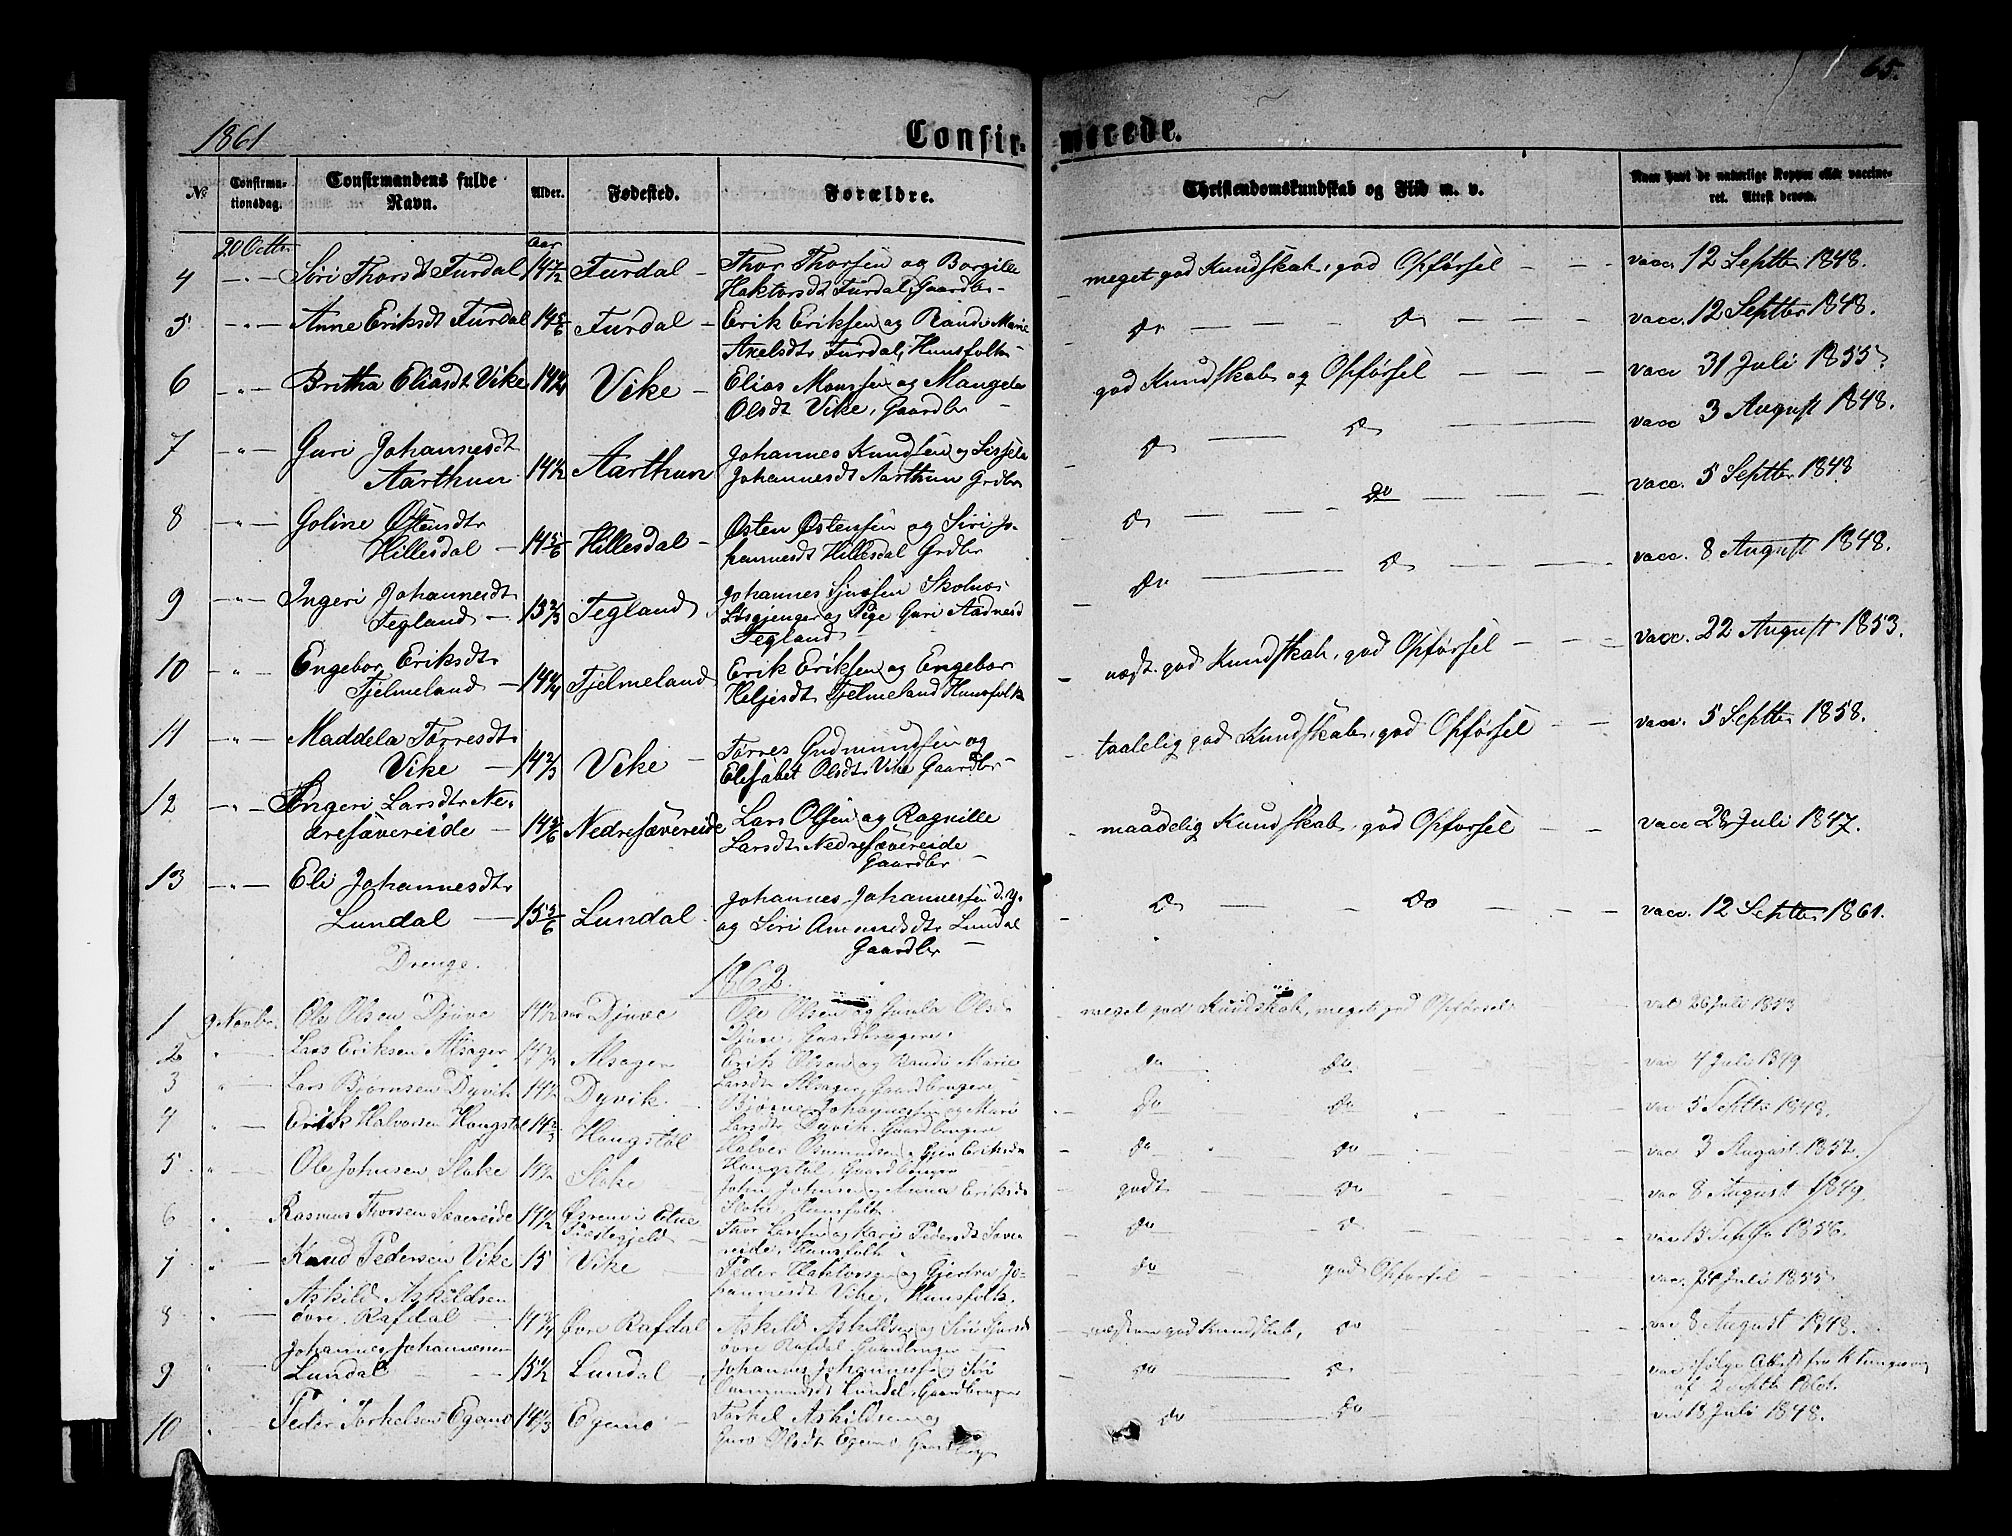 65.
1861
Confir-
merede.
No
Confirma-
tionsdag.
Confirmandens fulde
Navn.
Alder.
Fødested.
Forældre.
Christendomskundskab og Flid m. v.
Naar havt de naturlige Kopper eller vaccine-
ret. Attest derom.
20 Octbr.
Aar
4 Siri Thorsdt Furdal 14 1/2 Furdal - Thor Thorsen og Borgilla
Haktorsdt Furdal, Gaardbr -
meget god Kundskab, god Opførsel
vacc. 12 Septbr 1848.
5 Anne Eriksdt Furdal 14 5/6 Furdal - Erik Eriksen og Randi Marie
Axelsdtr Furdal, Huusfolk
do do
vacc. 12 Septbr 1848.
6 Britha Eliasdt Vike 14 Vike - Elias Monssen og Mangela
Olsdt Vike, Gaardbr
god Kundskab og Opførsel
vacc 31 Juli 1855.
7 Guri Johannesdt
Aarthun 14 1/2 Aarthun Johannes Knudsen og Sissela
Johannesdt Aarthun Grdbr
do do
vacc 3 August 1848.
8 Goline Østensdtr
Hillesdal - 14 5/6 Hillesdal - Østen Østensen og Siri Jo-
hannesdt Hillesdal Grdbr
do do
vacc. 5 Septbr 1848
9 Ingeri Johannesdt
Tegland - 13 2/3 Tegland Johannes Sjursen Skolnæs
Løsgjenger og Pige Guri Aadnesd
Tegland
do do
vacc. 8 August 1848.
10 Engebor Eriksdtr
Tjelmeland - 14 Tjelmeland Erik Eriksen og Engebor
Heljesdt Tjelmeland Huusfolk
næst. god Kundskab, god Opførsel
vacc. 22 August 1853.
11 Maddela Tørresdtr
Vike - 14 2/3 Vike - Tørres Gudmundsen og
Elisabet Olsdtr Vike Gaardbr -
taalelig god Kundskab, god Opførsel
vacc. 5 Septbr 1858.
12 Ingeri Larsdtr Ne-
dresævereide - 14 5/6 Nedresævereide Lars Olsen og Ragnille
Larsdtr Nedresævereide
Gaardbr -
maadelig Kundskab, god Opførsel
vacc 28 Juli 1847.
13 Eli Johannesdtr
Lundal - 15 5/6 Lundal Johannes Johannessen d. y.
og Siri Amundsdtr Lundal
Gaardbr -
do do
vacc. 12 Septbr 1861.
Drenge.
1862.
1 9 Novbr. Ole Olsen Djuve 14 1/2 Djuve Ole Olsen og Gunla Ols-
Djuve, Gaardbrugere.
meget god Kundskab, meget god Opførsel
vac 26 Juli 1853
2 Lars Eriksen Alsager 14 Alsager Erik Olsen og Randi Marie
Larsdtr Alsager, Gaardbrugere
do do
vac 4 Juli 1849
3 Lars Bjørnsen Dyvik 14 1/2 Dyvik Bjørne Johannessen og Mari
Larsdtr Dyvik. Gaardbruger
do do
vac 5 Septbr 1848.
4 Erik Halvorsen Hougstøl 14 2/3 Hougstøl Halvor Osmundsen og Eriksdtr
Hougstøl, Gaardbruger
do do
vac 3 August 1852.
5 Ole Johnsen Stoke 14 1/2 Stoke John Johnsen og Anna Eriksdt
Stoke, Huusfolk
godt do
vac 8 August 1849.
6 Rasmus Thorsen Sævereide 14 1/2 Østrem i Etne
Præstegjeld Thor Larssen og Kari Pedersdt Sæve-
reide, Huusfolk
do do
vac 15 Septbr 1856.
7 Knud Pedersen Vike 15 Vike Peder Haktorsen og Gjertru Jo-
hannesdt Vike, Huusfolk.
do god Opførsel
vac. 24 Juli 1855
8 Askild Askildsen
øvre Rafdal 14 3/4 Øvre Rafdal Askild Askildsen og Siri
øvre Rafdal Gaardbruger
næsten god Kundskab, do
vac 8 August 1848.
9 Johannes Johannesen
Lundal 15 1/2 Lundal Johannes Johannesen og Siri
Lundal, Gaardbruger
do do
vac ifølge Attest fra K.
af 2 Septbr
10 Peder Torkelsen Egemo 14 1/3 Egemo Torkel Askildsen og
Guro Olsdt Egemo Gaardbrug
do do
vac 18 Juli 1848.